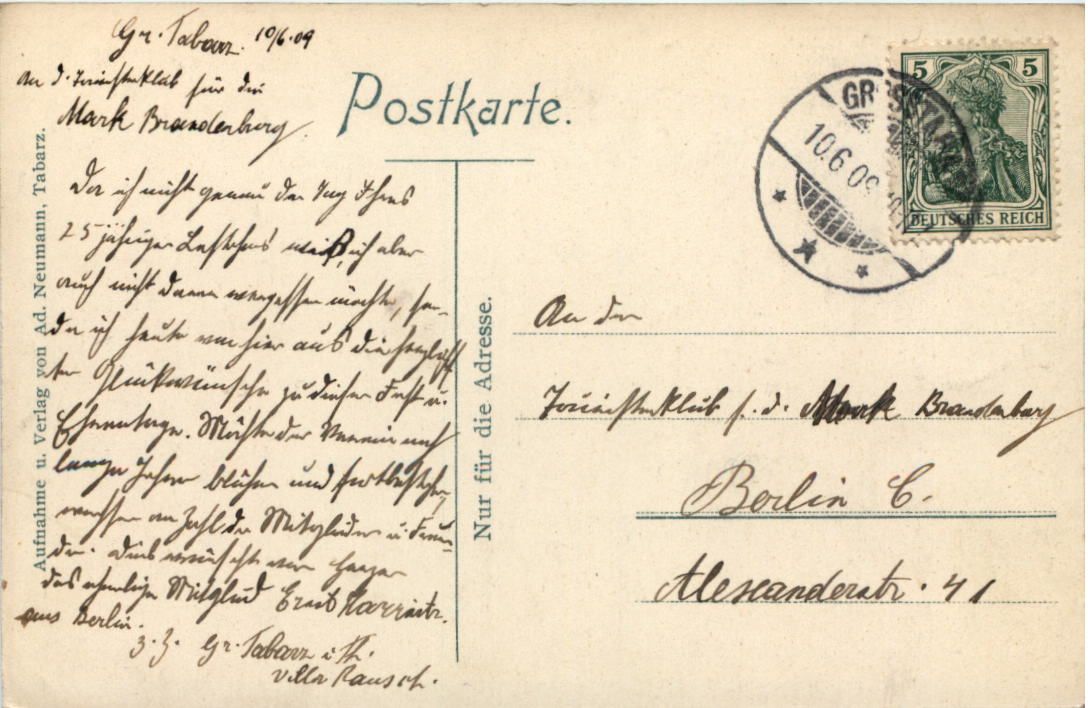 Gr. Tabarz. 10/6.09
An d. Touristenklub für die
Mark Brandenburg.
Da ich nicht genau den Tag Ihres
25 jährigen Bestehens weiß, ich aber
auch nicht daran vergessen möchte, sen-
de ich heute von hier aus die herzlich
sten Glückwünsche zu diesem Fest u.
Ehrentage. Möchte der Verein noch
lange Jahre blühen und fortbestehen,
wachsen an Zahl der Mitglieder u. Freun-
de. Dies wünscht von Herzen
das ehemalige Mitglied Erich
aus Berlin.
z. Z. Gr. Tabarz i. Th.
Villa Rausch.
Aufnahme u. Verlag von Ad. Neumann, Tabarz.
Postkarte.
Nur für die Adresse.
5 5
DEUTSCHES REICH
10.6.09
An den
Touristenklub f. d. Mark Brandenburg
Berlin C.
Alexanderstr. 41